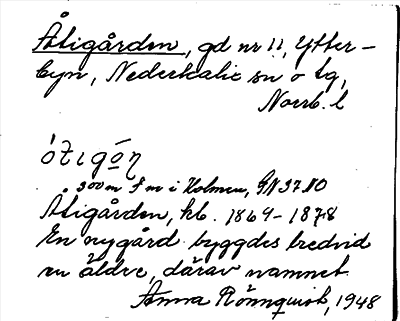 Åtigården, gd nr 11, Ytter-
byn, Nederkalix sn o tg,
Norrb. l
ótigón
300 m S m i Holmen, GN 37.10
Åtigården, hl. 1869-1878
En nygård byggdes bredvid
en äldre, därav namnet.
Anna Rönnquist, 1948